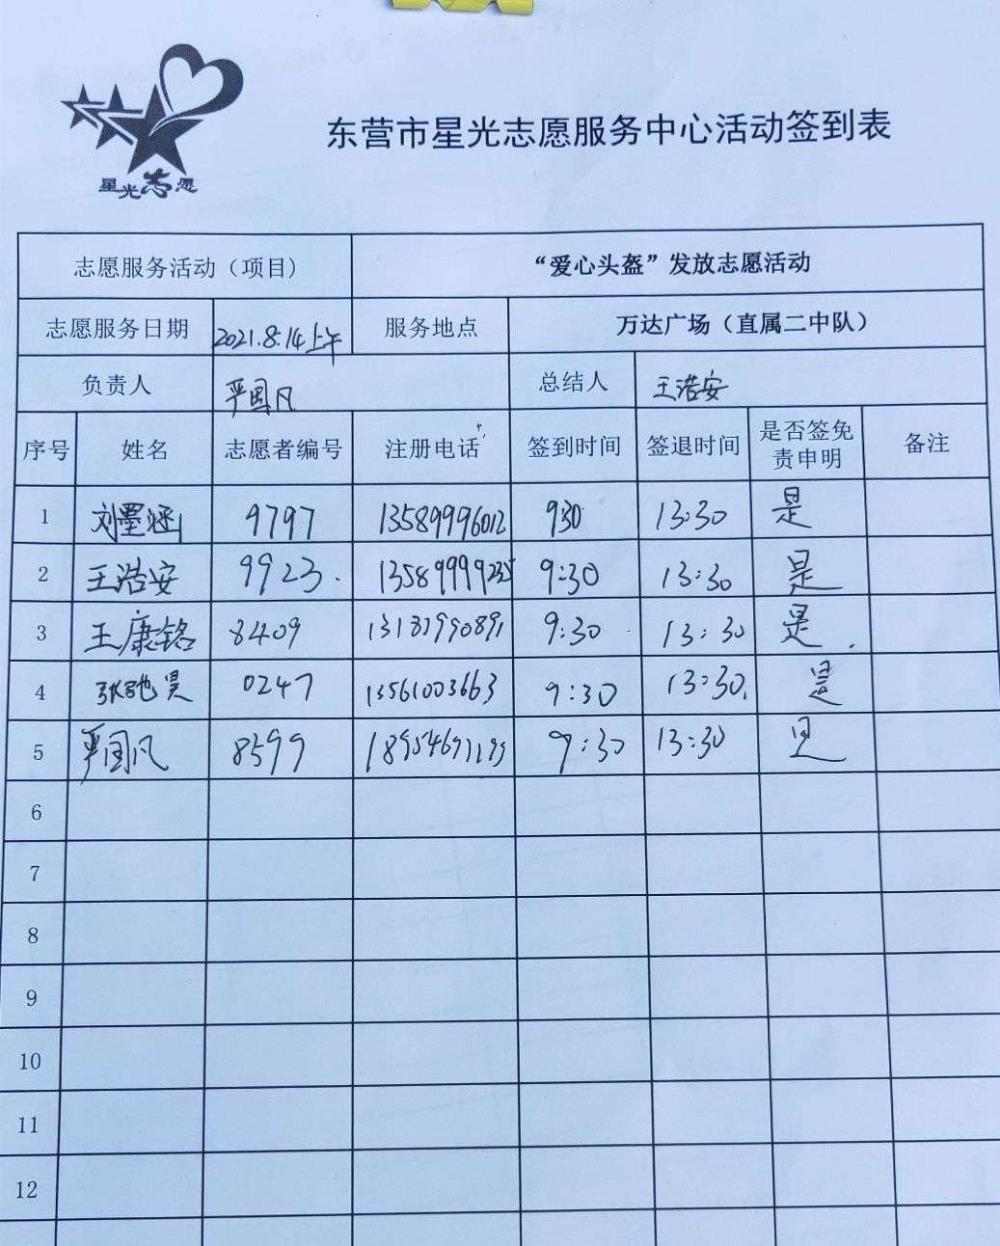 星光志愿
东营市星光志愿服务中心活动签到表
志愿服务活动（项目） “爱心头盔”发放志愿活动
志愿服务日期 2021.8.14上午 服务地点 万达广场（直属二中队）
负责人 严国凡 总结人 王浩安
序号 姓名 志愿者编号 注册电话 签到时间 签退时间 是否签免责申明 备注
1 刘墨涵 9797 13589996012 930 13:30 是
2 王浩安 9923. 9:30 13:30 是
3 王康铭 8409 9:30 13:30 是.
4 0247 13561003663 9:30 13:30. 是
5 严国凡 8599 9:30 13:30 是
6
7
8
9
10
11
12